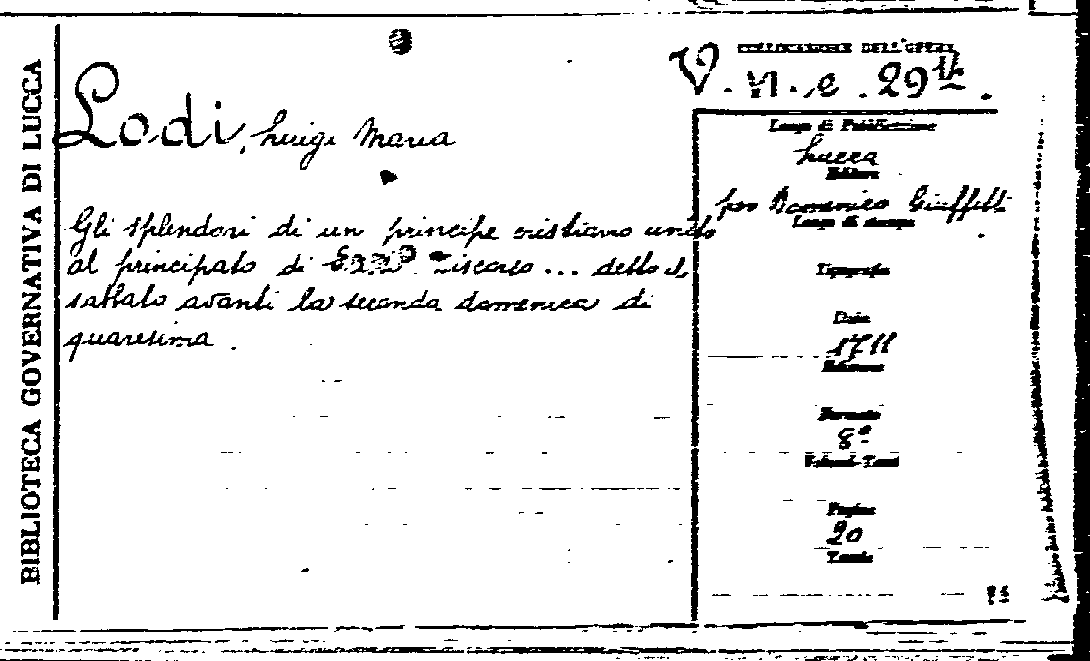 BIBLIOTECA GOVERNATIVA DI LUCCA
COLLOCAZIONE DELL'OPERA
V. VI. e. 29
Lodi, Luigi Maria
Gli splendori di un principe cristiano unito
al principato di Discorso ... detto il
sabbato avanti la seconda domenica di
quaresima.
Luogo di Pubblicazione
Lucca
Editore
per Domenico Ciuffetti
Luogo di stampa
Tipografia
Data
1711
Edizione
Formato
8º
Volumi-Tomi
Pagine
20
Tavole